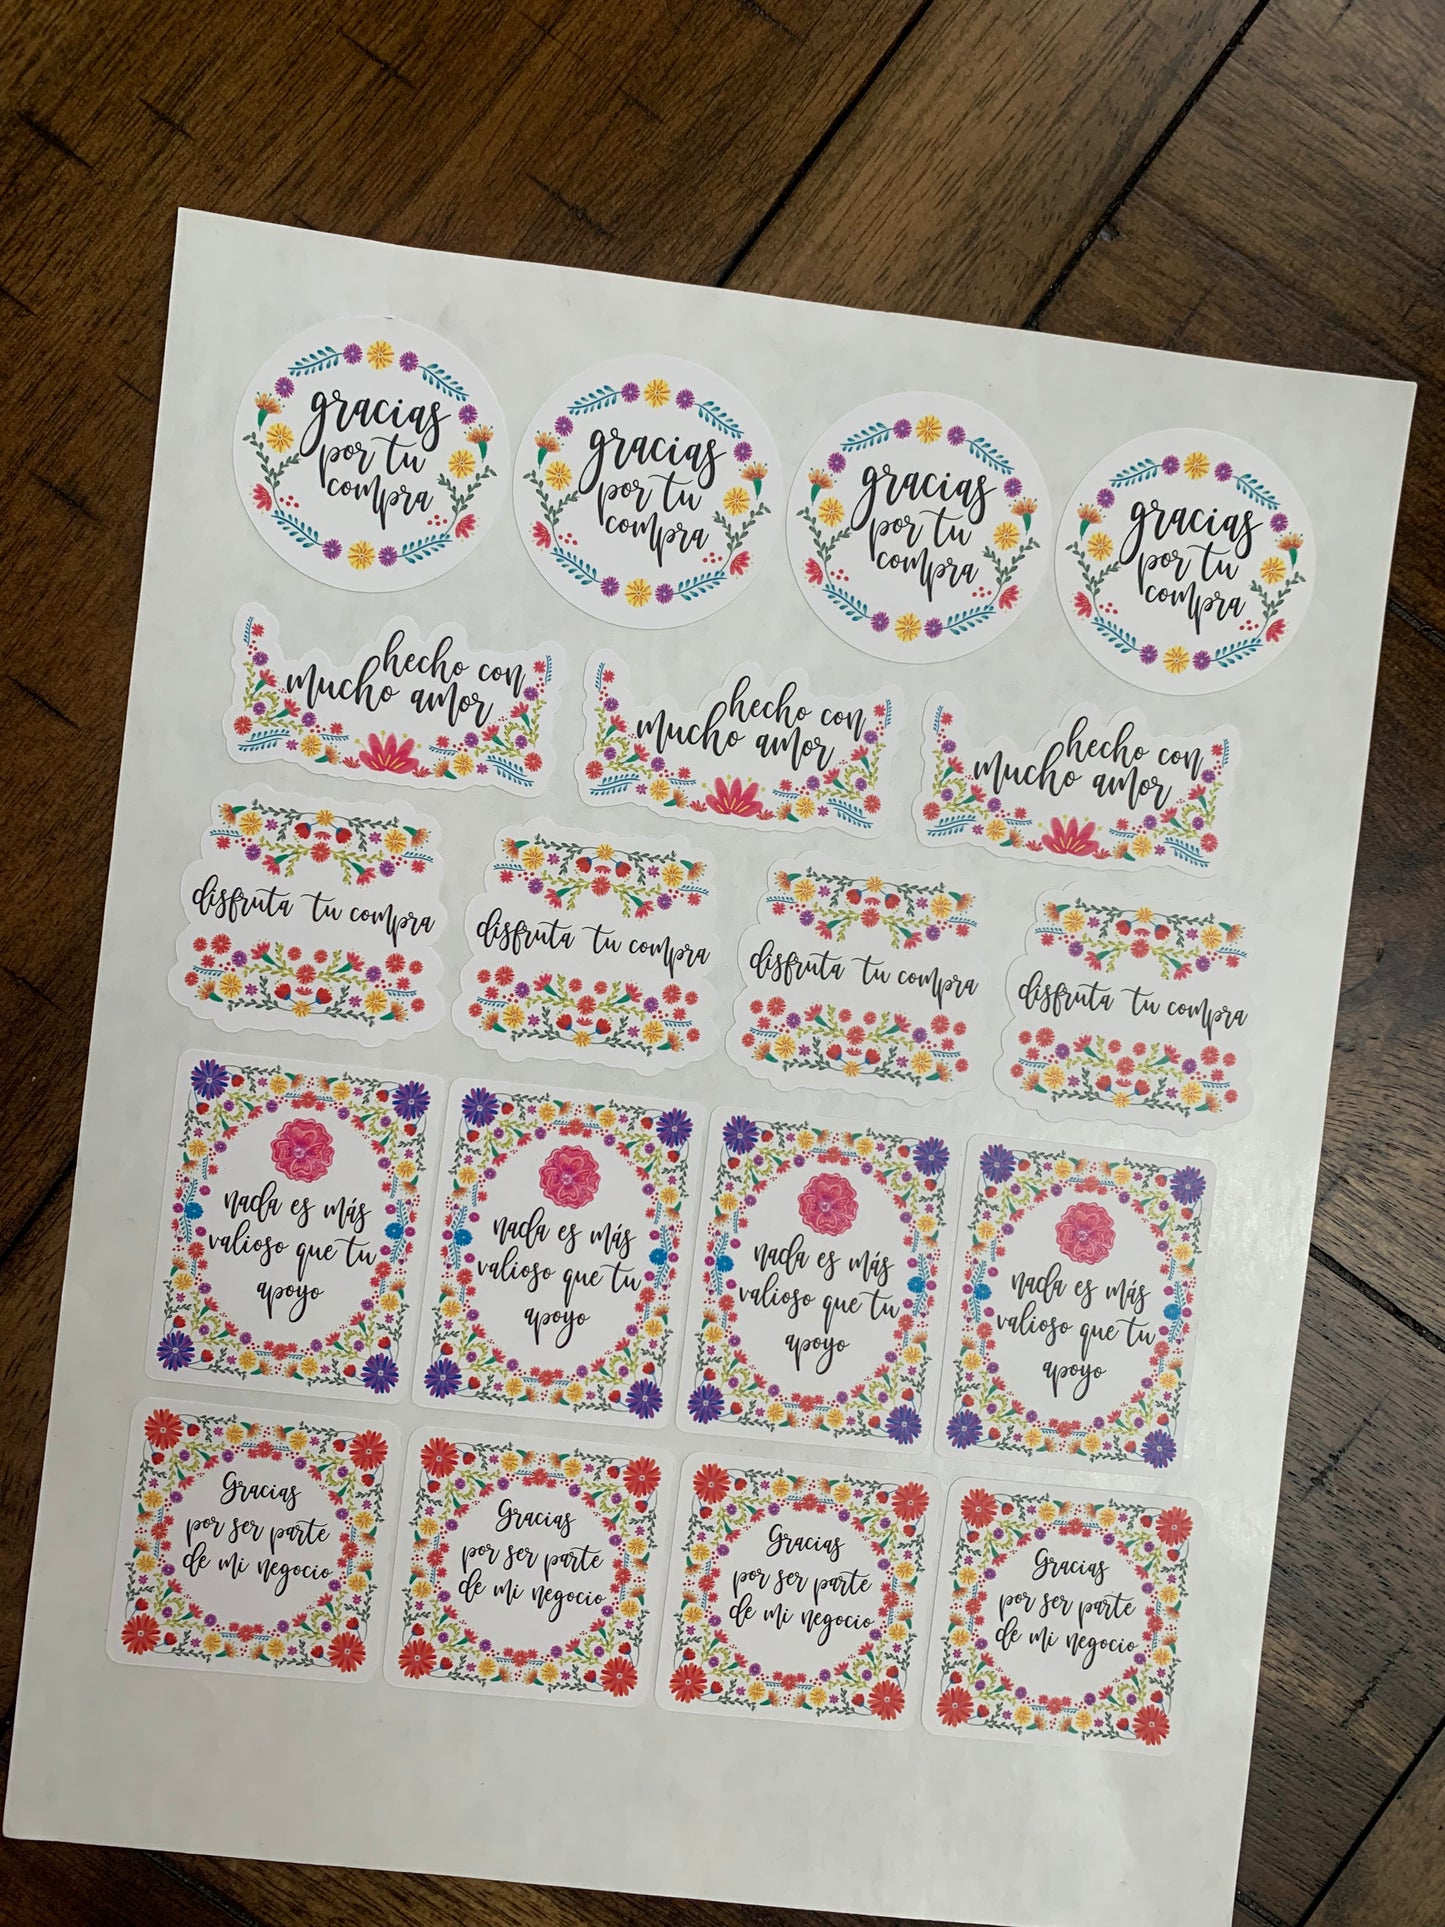 gracias
por tu
compra
gracias
por tu
compra
gracias
por tu
compra
gracias
por tu
compra
hecho con
mucho amor
hecho con
mucho amor
hecho con
mucho amor
disfruta tu compra
disfruta tu compra
disfruta tu compra
disfruta tu compra
nada es más
valioso que tu
apoyo
nada es más
valioso que tu
apoyo
nada es más
valioso que tu
apoyo
nada es más
valioso que tu
apoyo
Gracias
por ser parte
de mi negocio
Gracias
por ser parte
de mi negocio
Gracias
por ser parte
de mi negocio
Gracias
por ser parte
de mi negocio